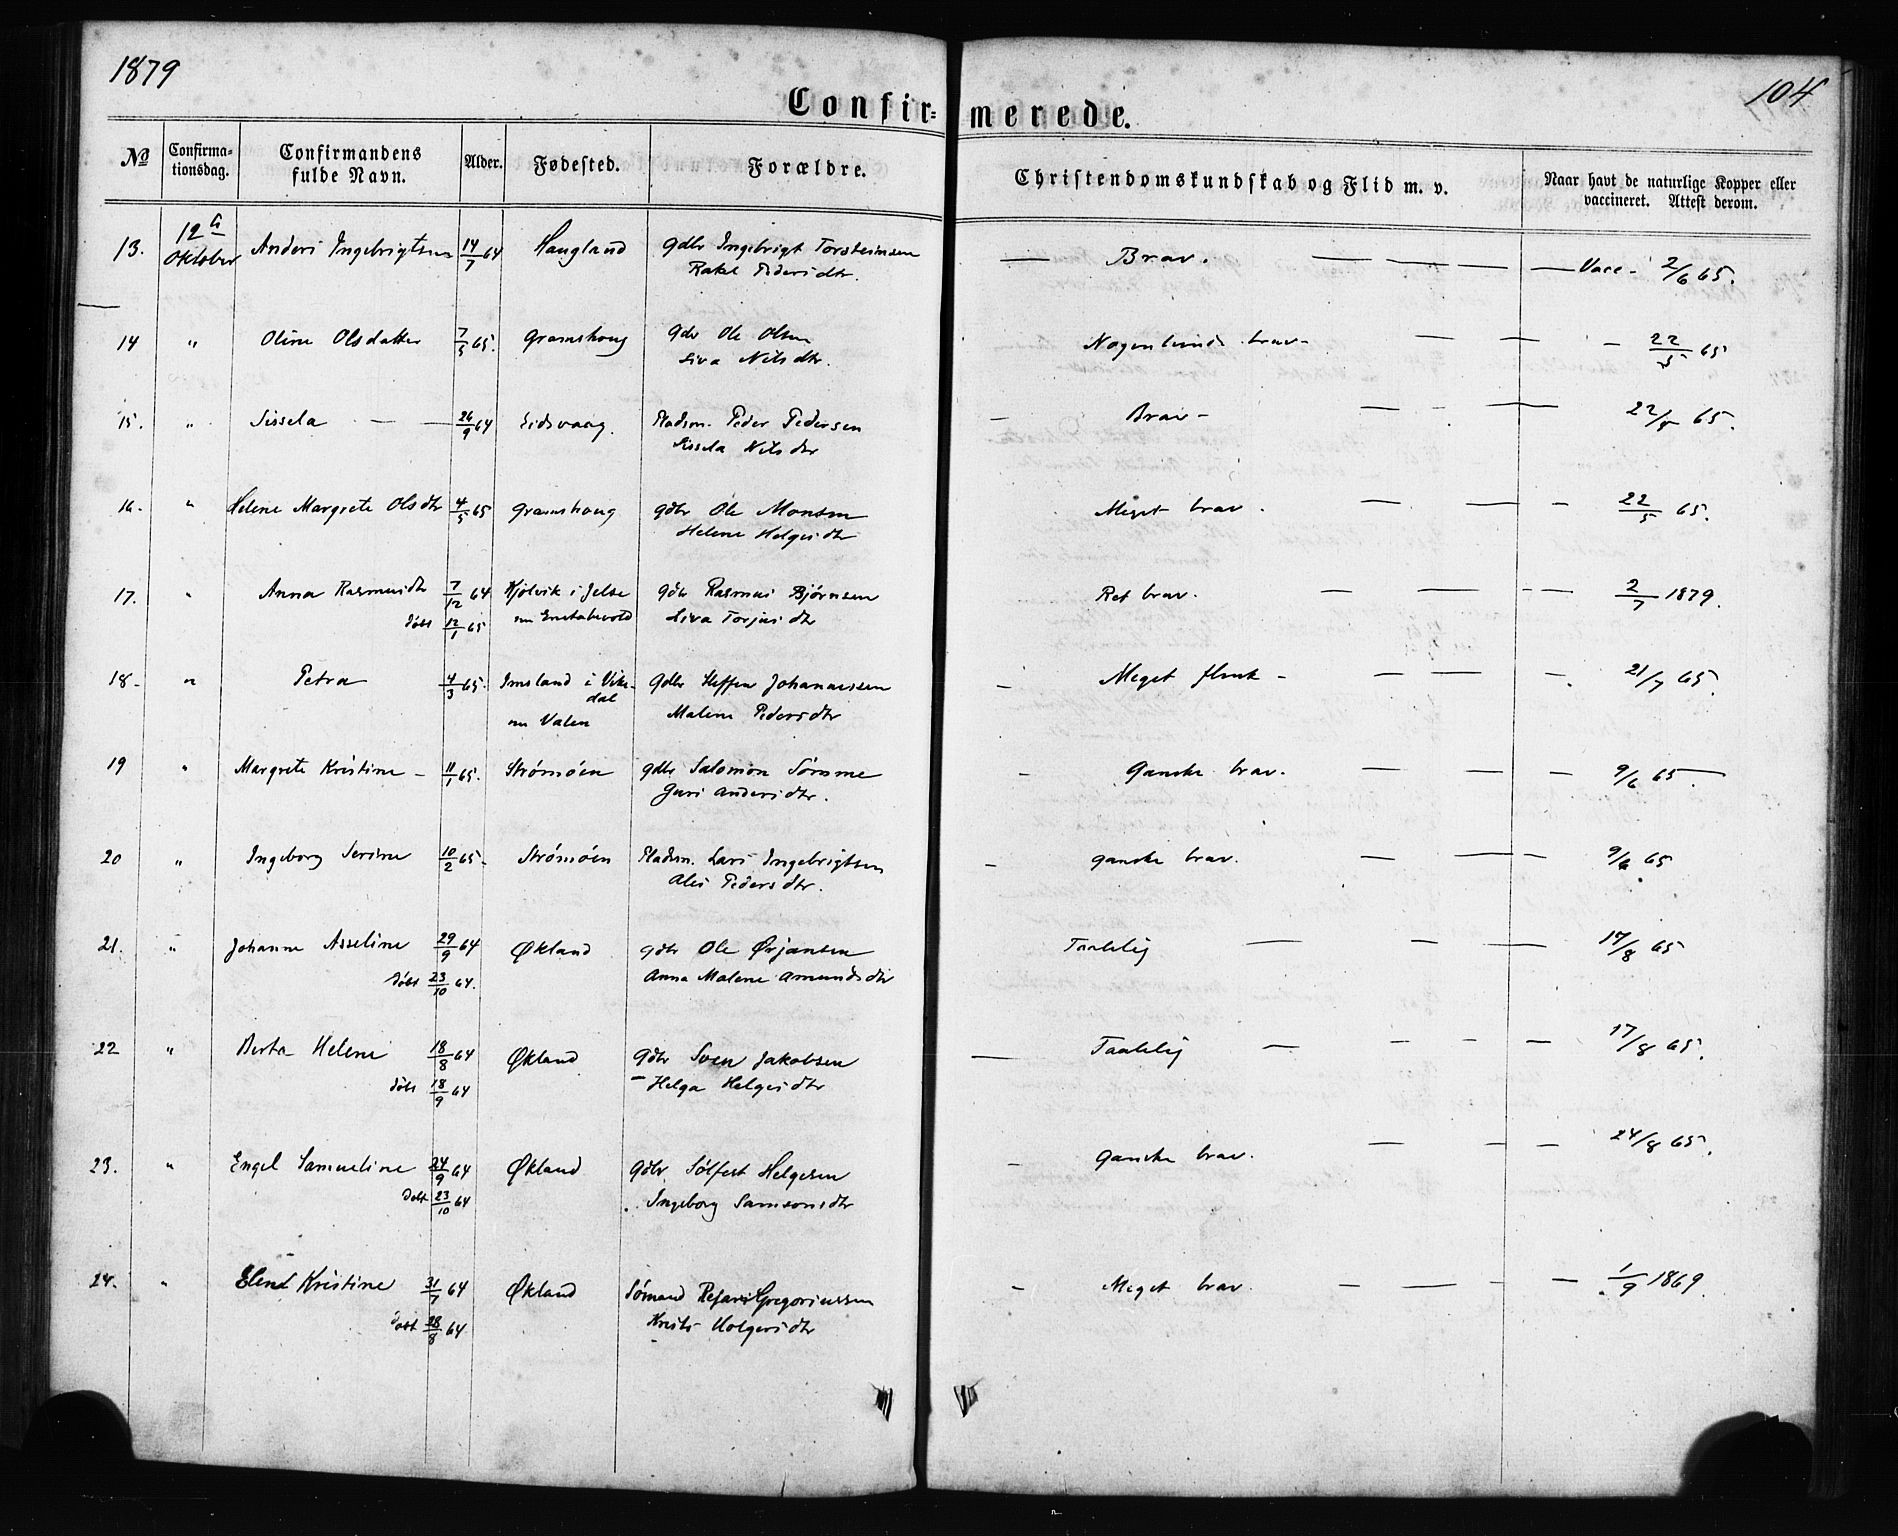 1879
104
Confir- merede.
No Confirmationsdag. Confirmandens fulde Navn. Alder. Fødested. Forældre. Christendomskundskab og Flid m. v. Naar havt de naturlige Kopper eller vaccineret. Attest derom.
13. 12 Oktober Anders Ingebrigtsen 14/7 64 Haugland Gdbr Ingebrigt Torsteinsen — Brav. — — — — — Vacc. 2/6 65.
Rakel Pedersdtr.
14 " Oline Olsdatter 7/5 65. Gramshoug Gdbr Ole Olsen Nogenlunde brav — — — — 22/5 65
Siva Nilsdtr.
15. " Sissela — — 26/9 64 Eidsvaag. Pladsm. Peder Pedersen — Brav — — - — 22/5 65.
Sissela Nilsdtr
16. " Helene Margrete Olsdtr 4/5 65 Gramshoug Gdbr Ole Monsen Meget brav. — — — 22/5 65.
Helene Helgesdtr
17. " Anna Rasmusdtr 7/12 64 Hjølvik i Jelse Gdbr Rasmus Bjørnsen Ret brav. — — - — 2/7 1879.
døbt 12/1 65 nu Siva Torjusdtr
18. " Petra 4/3 65. Imsland i Vikedal Gdbr Steffen Johannessen — Meget flink — — — — 21/7 65.
nu Valen Malene Pedersdtr
19 " Margrete Kristine — 11/1 65. Strømøen Gdbr Salomon Sømme — Ganske brav. — — — 9/6 65 —
Guri Andersdtr.
20 " Ingeborg Serine 10/2 65. Strømøen Pladsm. Lars Ingebrigtsen — ganske brav. — — — 9/6 65
Alis Pedersdtr.
21. " Johanne Asseline 29/9 64 Økland Gdbr Ole Ørjansen Taalelig — — — 17/8 65
døbt 23/10 64. Anna Malene Amundsdtr
22 " Berta Helene 18/8 64 Økland Gdbr Sven Jakobsen — Taalelig — — — — 17/8 65.
døbt 18/9 64 — Helga Helgesdtr
23. " Engel Samueline 24/9 64 Økland Gdbr. Sølfest Helgesen — Ganske brav. — — — 24/8 65.
Døbt 23/10 64 Ingeborg Samsonsdtr
24. " Kristine 31/7 64 Økland Sømand Gregoriussen — Meget brav. — — - — 1/9 1869.
døbt 28/8 64 Holgersdtr